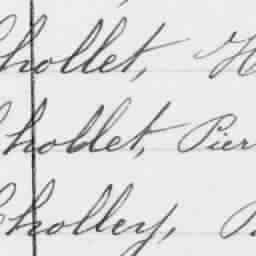 Chollet, H
Chollet, Pier
Cholley,